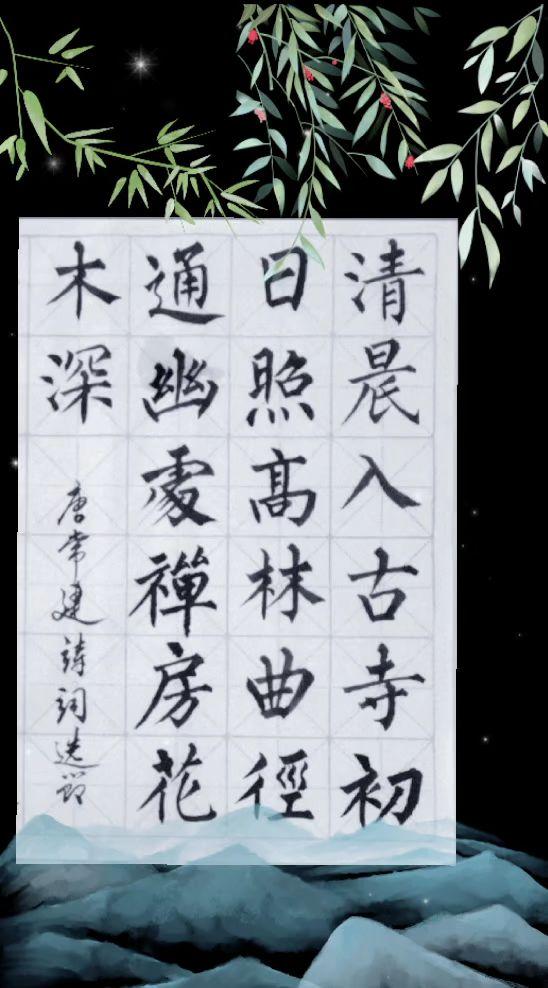 清晨入古寺初
日照髙林曲徑
通幽處禪房花
木深
唐常建詩詞选節